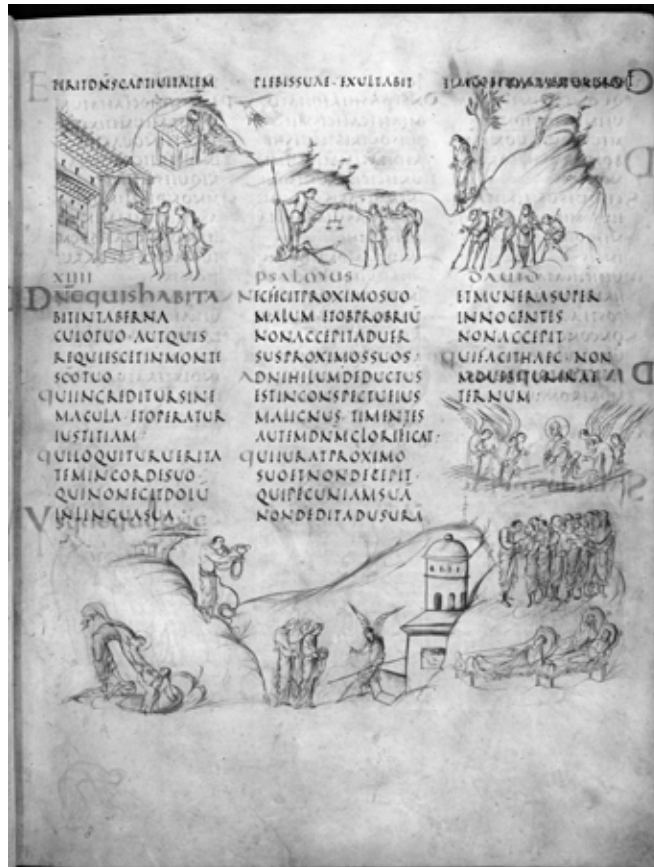 PERITDNSCAPTIUITATEM PLEBISSUAE·EXULTABIT
XIIII PSALMUS DAUID
DNEQUISHABITA
BITINTABERNA
CULOTUO·AUTQUIS
REQUIESCETINMONTE
SCOTUO
QUIINGREDITURSINE
MACULA·ETOPERATUR
IUSTITIAM
QUILOQUITURUERITA
TEMINCORDISUO
QUINONEGITDOLU
INLINGUASUA
NECFECITPROXIMOSUO
MALUM·ETOBPROBRIU
NONACCEPITADUER
SUSPROXIMOSSUOS
ADNIHILUMDEDUCTUS
ESTINCONSPECTUEIUS
MALIGNUS·TIMENTES
AUTEMDNMGLORIFICAT
QUIIURATPROXIMO
SUOETNONDECEPIT
QUIPECUNIAMSUA
NONDEDITADUSURA
ETMUNERASUPER
INNOCENTES
NONACCEPIT
QUIFACITHAEC·NON
TERNUM